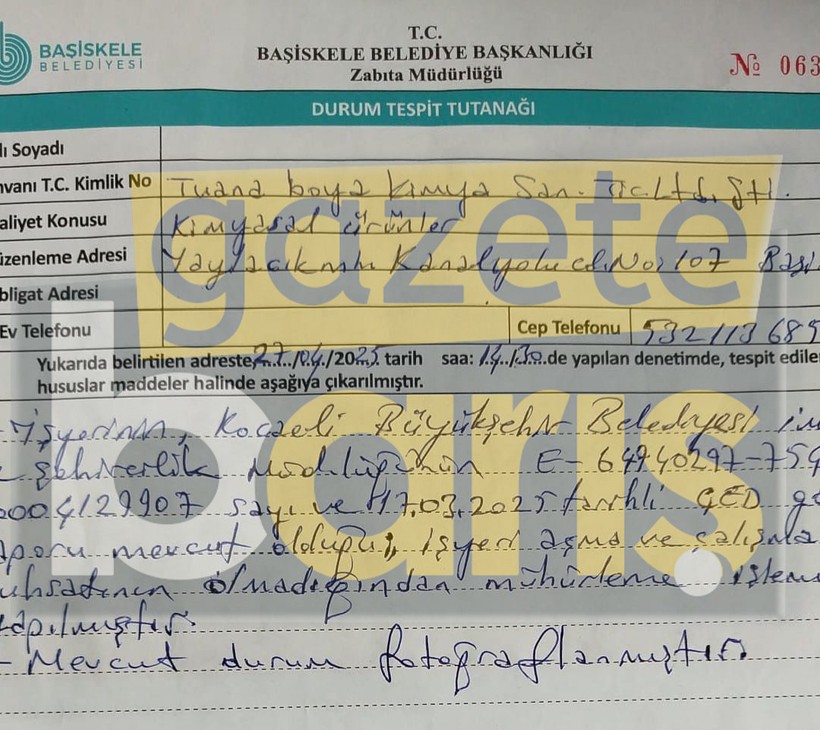 BAŞİSKELE
BELEDİYESİ
T.C.
BAŞİSKELE BELEDİYE BAŞKANLIĞI
Zabıta Müdürlüğü
№ 063
DURUM TESPİT TUTANAĞI
ı Soyadı
nvanı T.C. Kimlik No Tuana boya kimya San. Tic. Ltd. Şti.
aliyet Konusu Kimyasal ürünler
üzenleme Adresi Yaylacık mh Kanalyolu cd. No: 107 Başi
bligat Adresi
Ev Telefonu Cep Telefonu 532 113 689
Yukarıda belirtilen adreste 27/04/2025 tarih saa: 14/30 de yapılan denetimde, tespit edile
hususlar maddeler halinde aşağıya çıkarılmıştır.
- İşyerinin, Kocaeli Büyükşehir Belediyesi im
Şehircilik Müdürlüğünün E-64940297-754
0004129907 sayı ve 17.03.2025 tarihli GED g
aporu mevcut olduğu, işyeri açma ve çalışma
uhsatının olmadığından mühürleme işlemi
yapılmıştır.
- Mevcut durum fotoğraflanmıştır.
gazete
barış